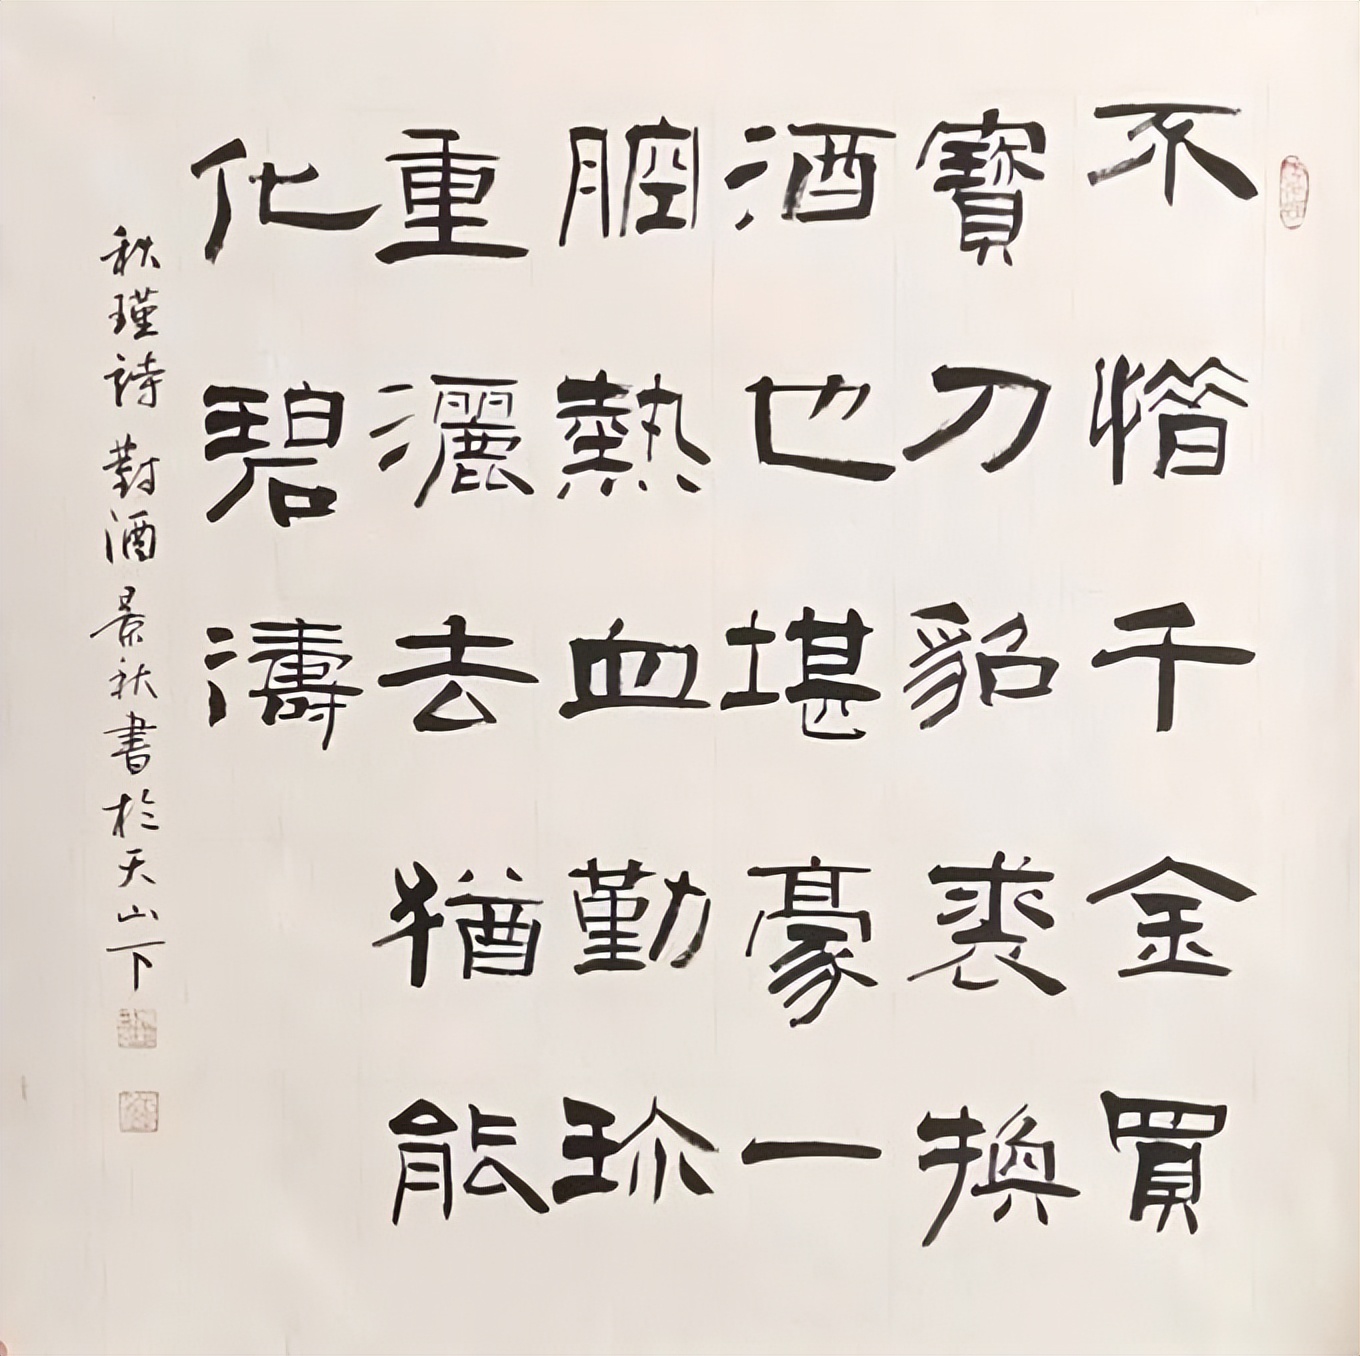 不惜千金買
寶刀貂裘換
酒也堪豪一
腔熱血勤珎
重灑去猶能
化碧濤
秋瑾詩對酒景秋書於天山下